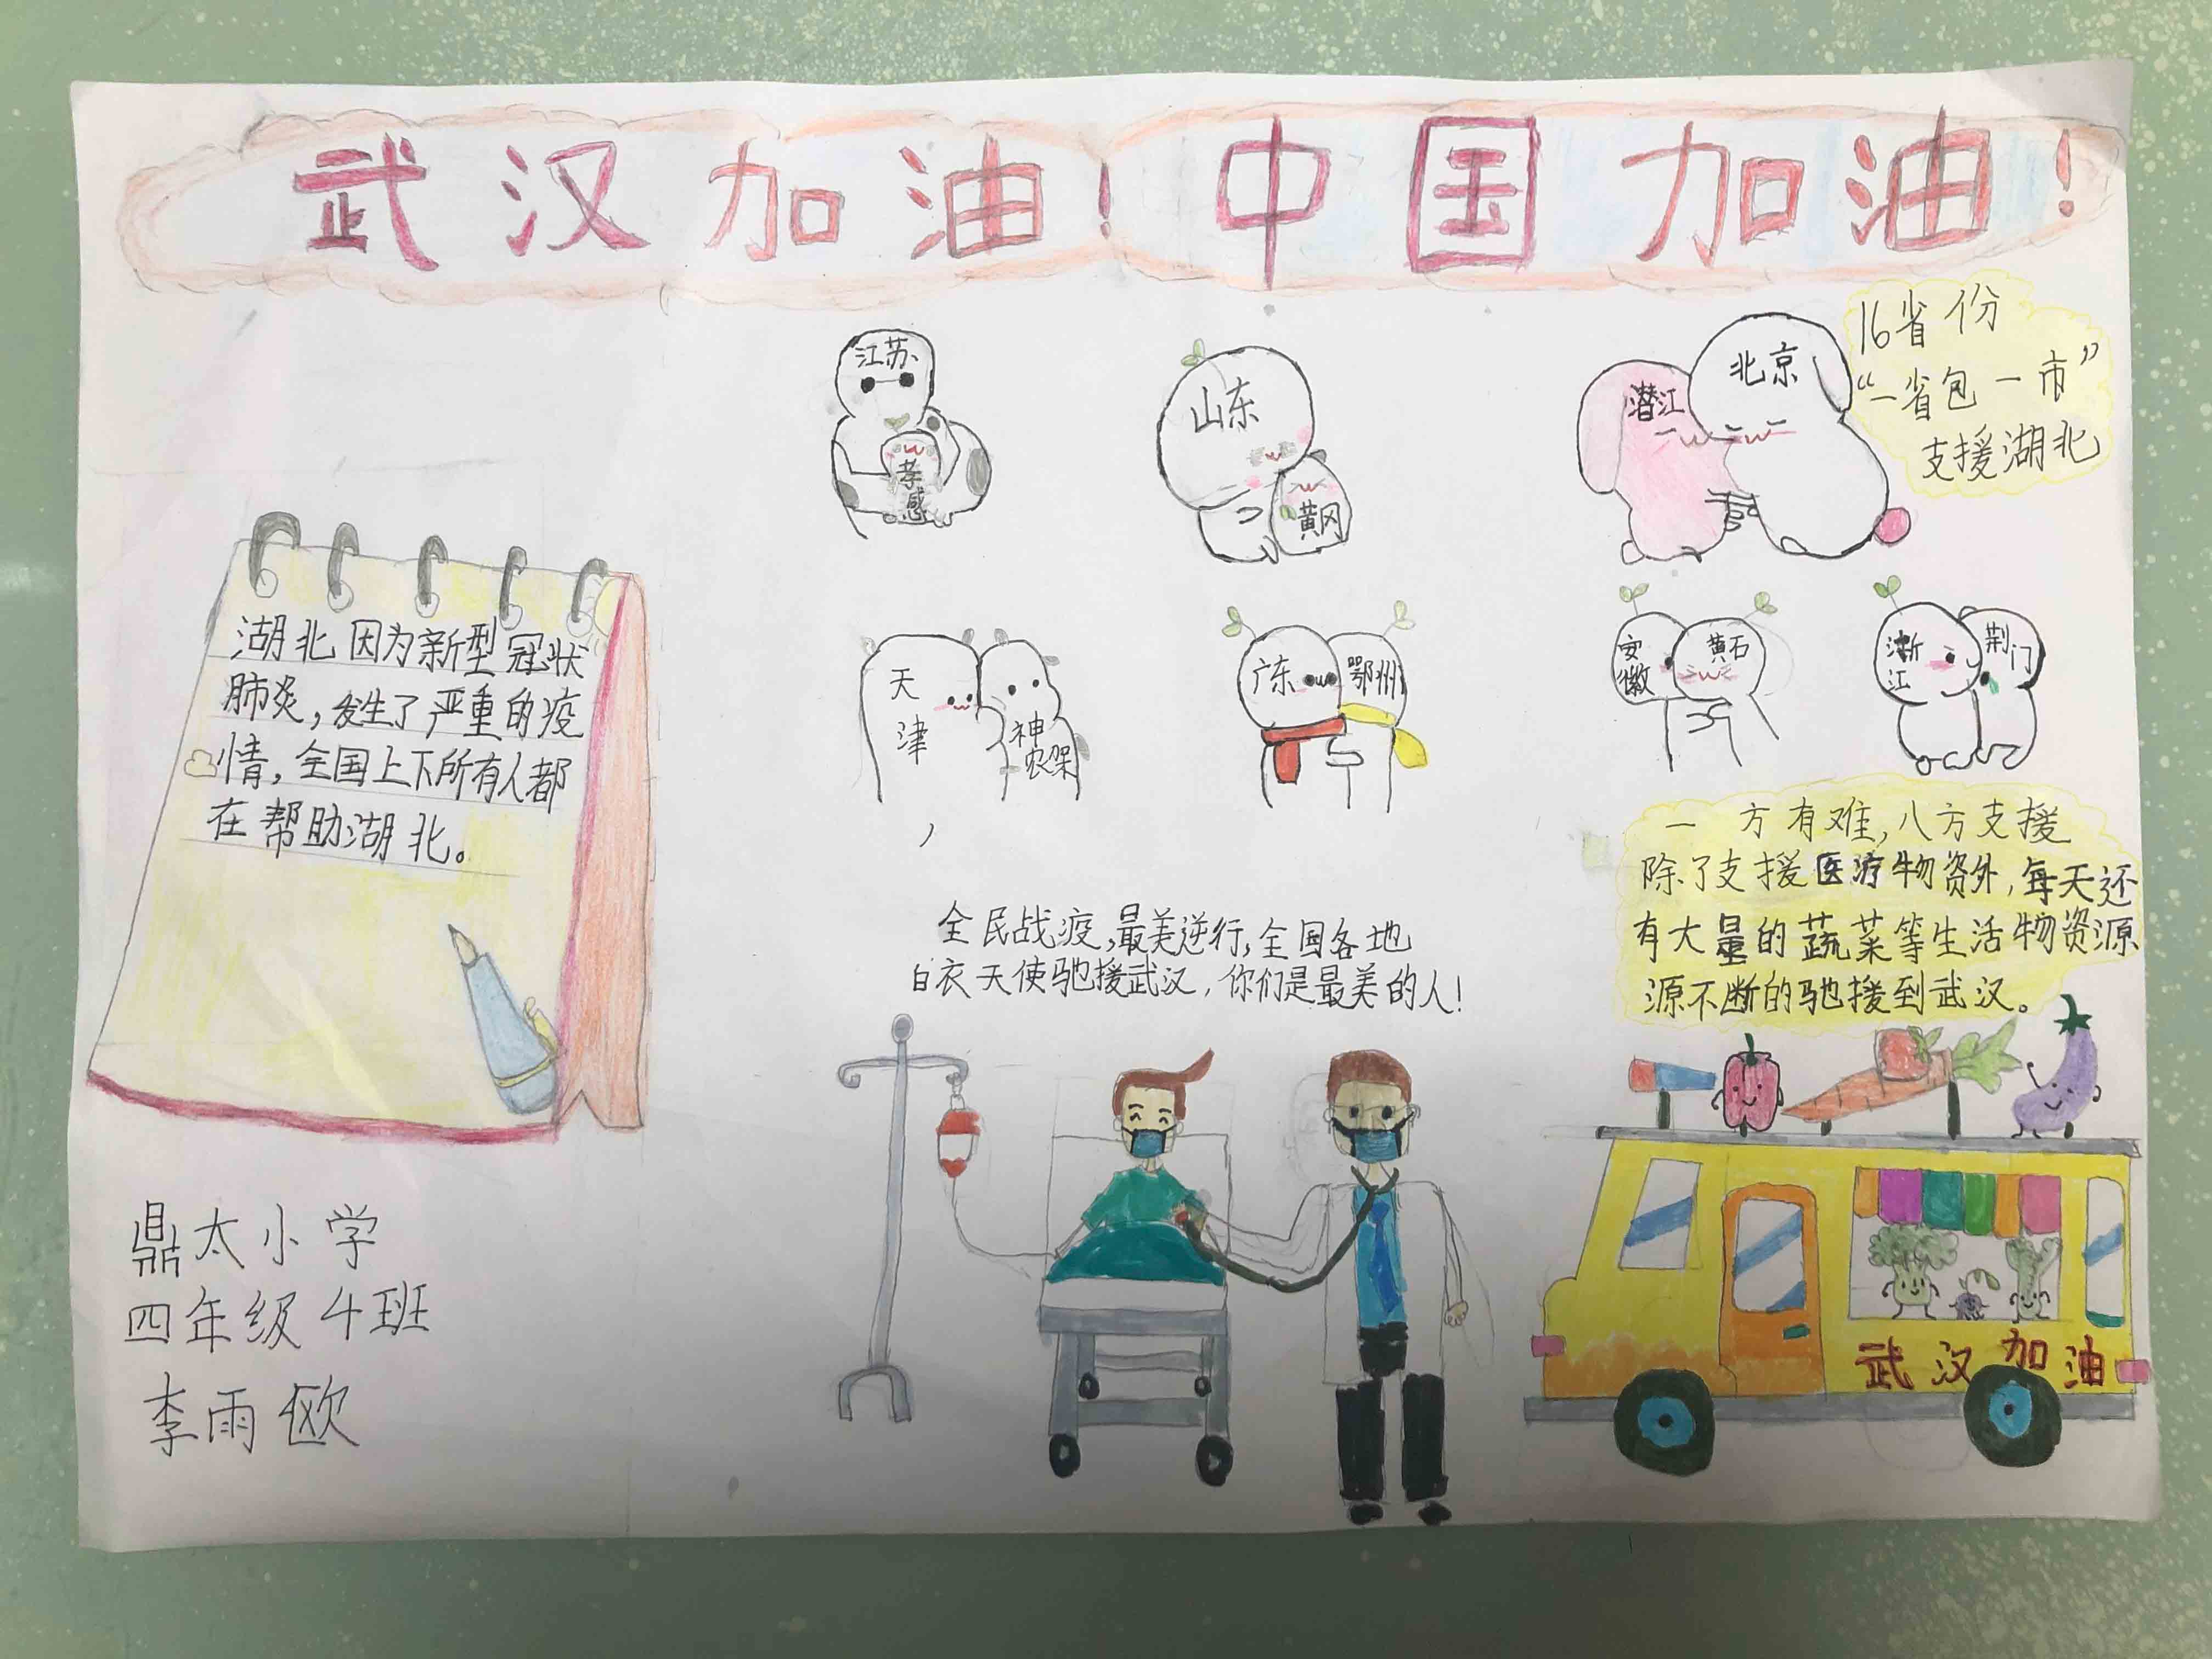 武汉加油！中国加油！
16省份
“一省包一市”
支援湖北
江苏
孝感
山东
黄冈
潜江
北京
天津
神农架
广东
鄂州
安徽
黄石
浙江
荆门
湖北因为新型冠状
肺炎，发生了严重的疫
情，全国上下所有人都
在帮助湖北。
全民战疫，最美逆行，全国各地
白衣天使驰援武汉，你们是最美的人！
一方有难，八方支援
除了支援医疗物资外，每天还
有大量的蔬菜等生活物资源
源不断的驰援到武汉。
武汉加油
鼎太小学
四年级4班
李雨